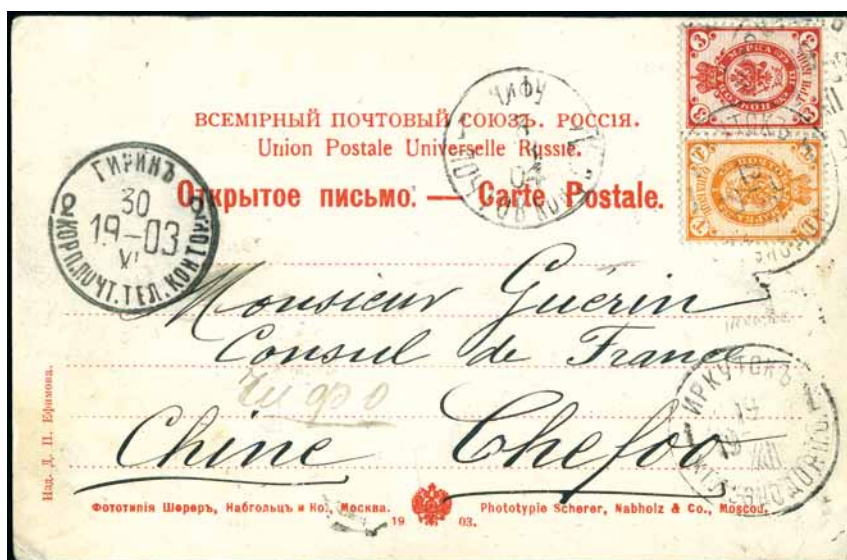 ВСЕМІРНЫЙ ПОЧТОВЫЙ СОЮЗЪ. РОССІЯ.
Union Postale Universelle Russie.
Открытое письмо. — Carte Postale.
ЧИФУ
04
ГИРИНЪ
30
19-03
XI
2 КОРП. ПОЧТ. ТЕЛ. КОНТОРА 2
Monsieur Guérin
Consul de France
Чифо
Chine Chefoo
ИРКУТСКЪ
1 1
19
19
XII
Изд. Д. П. Ефимова.
Фототипія Шереръ, Набгольцъ и Ко., Москва. 1903. Phototypie Scherer, Nabholz & Co., Moscou.